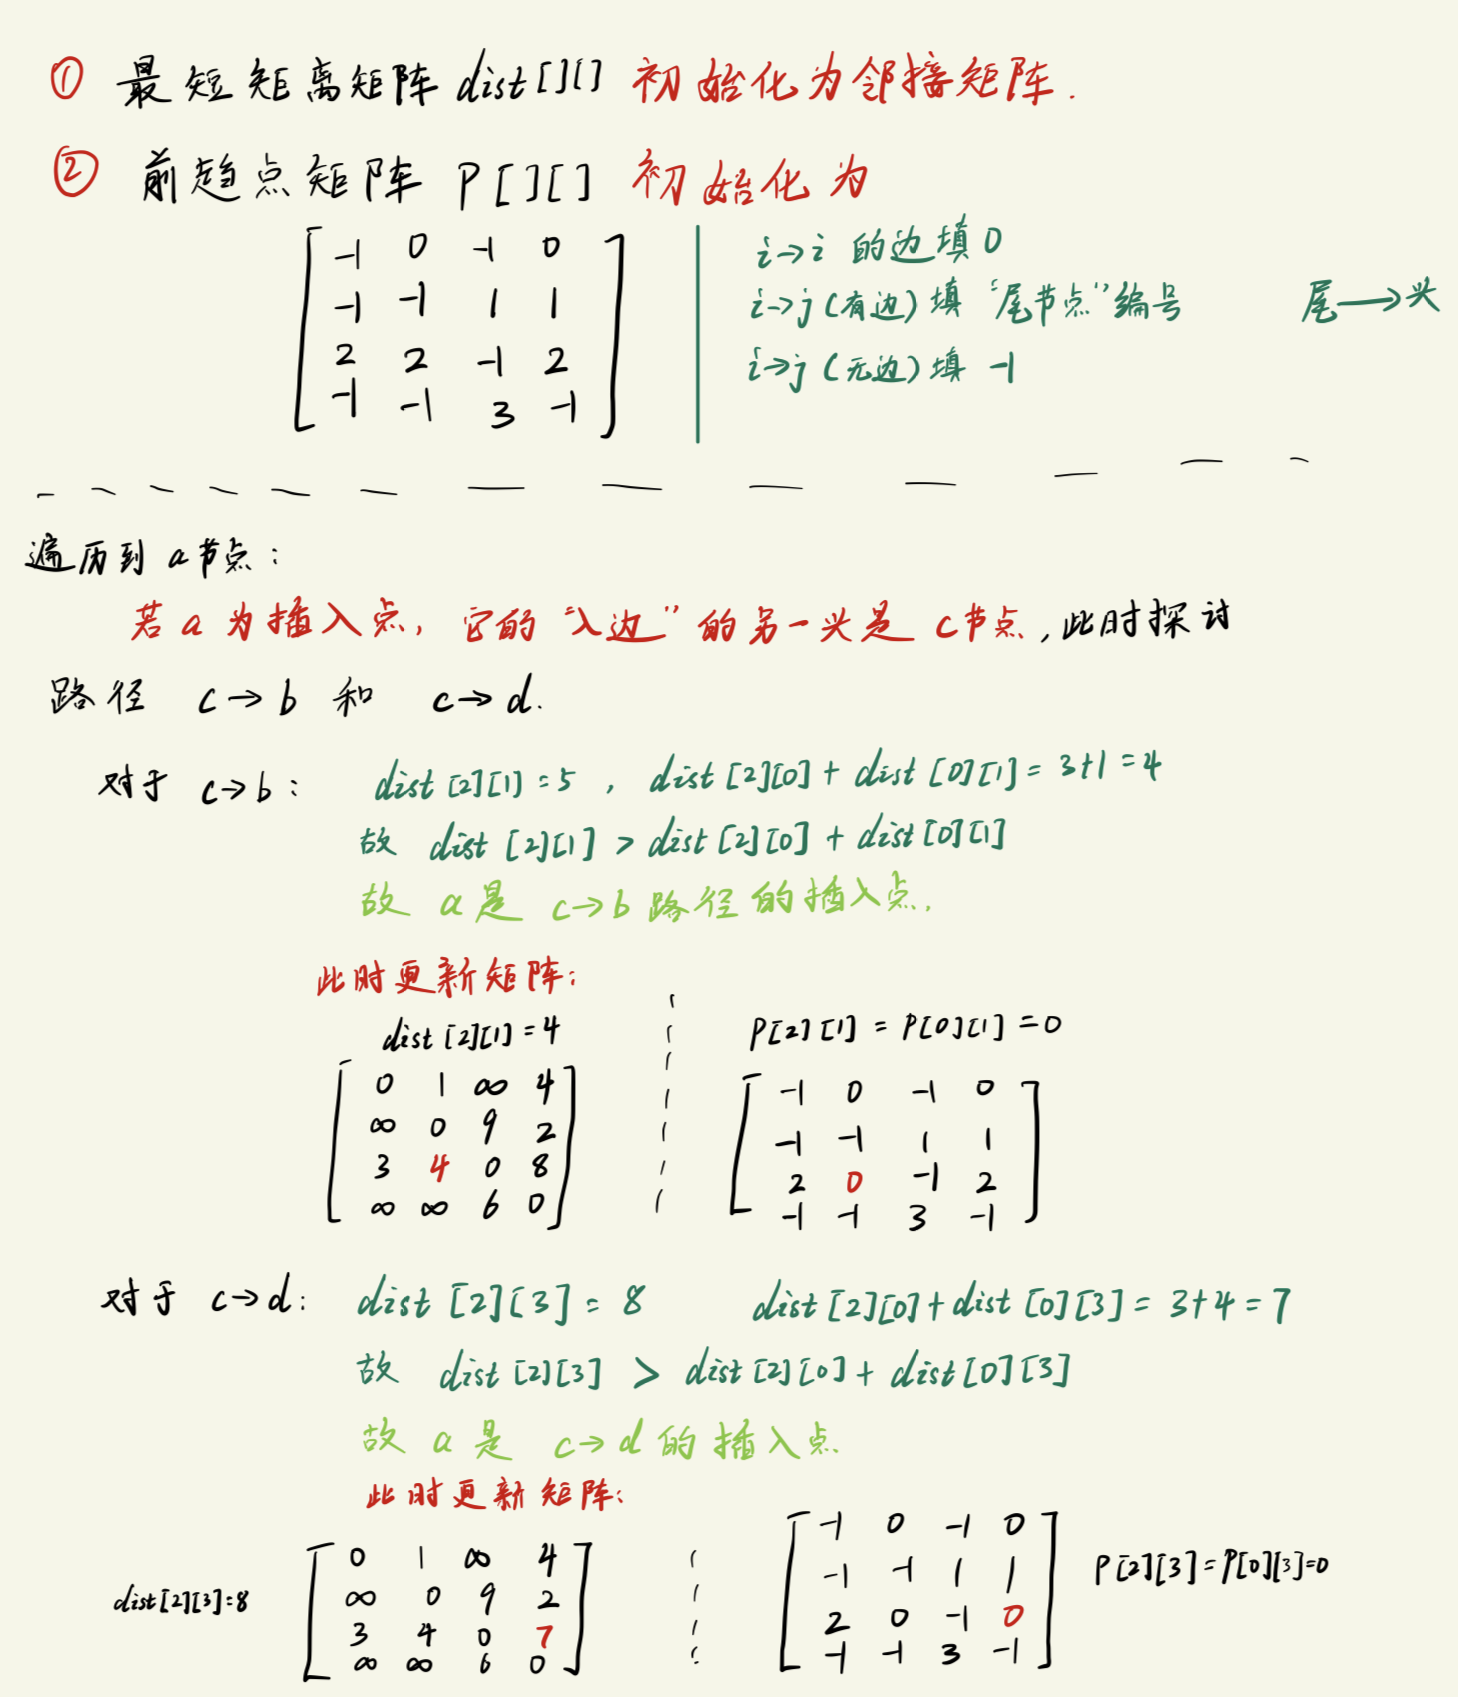 ① 最短矩离矩阵 dist[][] 初始化为邻接矩阵.
② 前趋点矩阵 P[][] 初始化为
-1 0 -1 0
-1 -1 1 1
2 2 -1 2
-1 -1 3 -1
i→i 的边填 0
i→j (有边) 填 “尾节点” 编号 尾→头
i→j (无边) 填 -1
遍历到 a 节点:
若 a 为插入点, 它的 “入边” 的另一头是 c 节点, 此时探讨
路径 c→b 和 c→d.
对于 c→b: dist[2][1]=5 , dist[2][0]+dist[0][1]=3+1=4
故 dist[2][1] > dist[2][0]+dist[0][1]
故 a 是 c→b 路径的插入点.
此时更新矩阵:
dist[2][1]=4 P[2][1]=P[0][1]=0
0 1 ∞ 4
∞ 0 9 2
3 4 0 8
∞ ∞ 6 0
-1 0 -1 0
-1 -1 1 1
2 0 -1 2
-1 -1 3 -1
对于 c→d: dist[2][3]=8 dist[2][0]+dist[0][3]=3+4=7
故 dist[2][3] > dist[2][0]+dist[0][3]
故 a 是 c→d 的插入点
此时更新矩阵:
dist[2][3]=8
0 1 ∞ 4
∞ 0 9 2
3 4 0 7
∞ ∞ 6 0
-1 0 -1 0
-1 -1 1 1
2 0 -1 0
-1 -1 3 -1
P[2][3]=P[0][3]=0